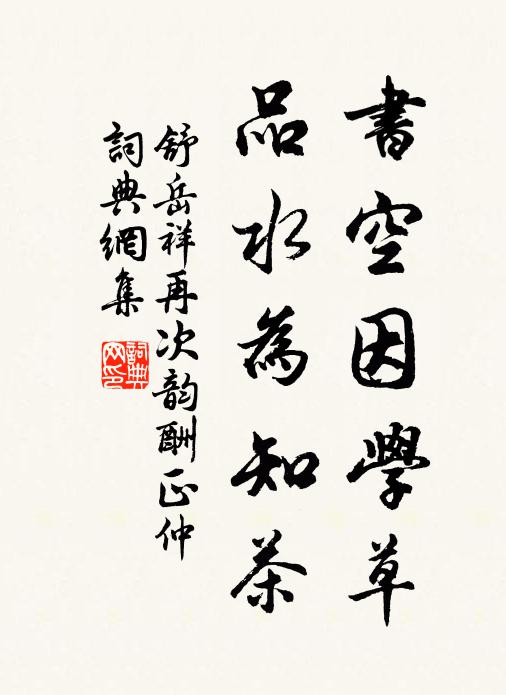 書空因學草
品水為知茶
舒岳祥再次韵酬正仲
詞典網集
詞典网印